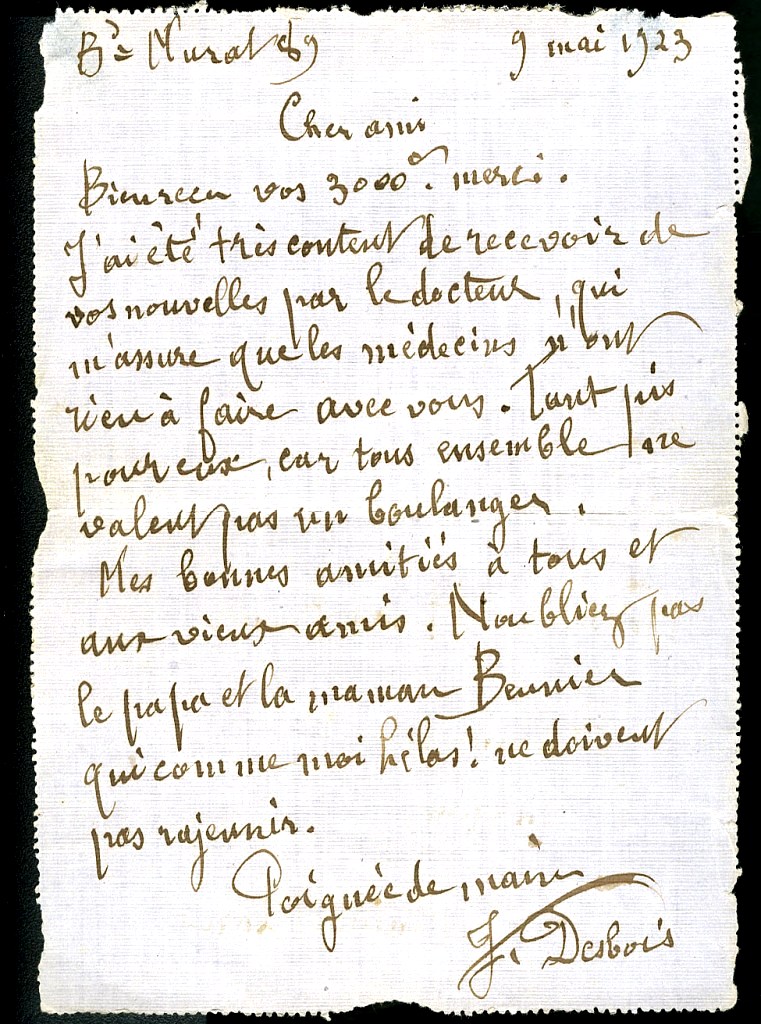 Bd Murat 89 9 mai 1923
Cher ami
Bien reçu vos 3000 f. merci.
J'ai été très content de recevoir de
vos nouvelles par le docteur, qui
m'assure que les médecins n'ont
rien à faire avec vous. Tant pis
pour eux, car tous ensemble ne
valent pas un boulanger.
Mes bonnes amitiés à tous et
aux vieux amis. N'oubliez pas
le papa et la maman
qui comme moi hélas! ne doivent
pas rajeunir.
Poignée de main
J. Desbois